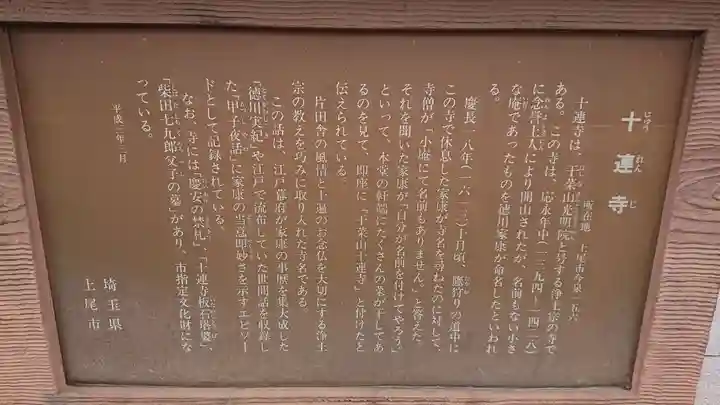 十連寺
じゅうれんじ
所在地 上尾市今泉一五六
十連寺は、千葉山光明院と号する浄土宗の寺で
ある。この寺は、応永年中(一三九四〜一四二八)
に念誉上人により開山されたが、名前もない小さ
な庵であったものを徳川家康が命名したといわれ
る。
慶長一八年(一六一三)十月頃、鷹狩りの道中に
この寺で休息した家康が寺名を尋ねたのに対して、
寺僧が「小庵にて名前もありません。」と答えた。
それを聞いた家康が「自分が名前を付けてやろう」
といって、本堂の軒端にたくさんの菜が干してあ
るのを見て、即座に「干菜山十連寺」と付けたと
伝えられている。
片田舎の風情と十遍のお念仏を大切にする浄土
宗の教えを巧みに取り入れた寺名である。
この話は、江戸幕府が家康の事歴を集大成した
『徳川実紀』や江戸で流布していた世間話を収録し
た『甲子夜話』に家康の当意即妙さを示すエピソー
ドとして記録されている。
なお、寺には「慶安の禁札」、「十連寺板石塔婆」、
「柴田七九郎父子の墓」があり、市指定文化財にな
っている。
平成三年三月
埼玉県
上尾市